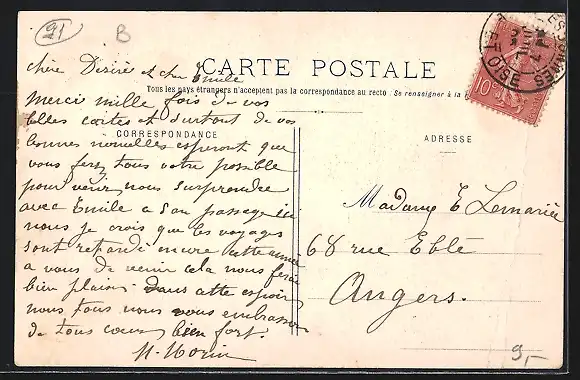 91
B
CARTE POSTALE
Tous les pays étrangers n'acceptent pas la correspondance au recto (Se renseigner à la
CORRESPONDANCE
ADRESSE
chère Désiré et cher Emile
Merci mille fois de vos
belles cartes et surtout de vos
bonnes nouvelles esperont que
vous ferez tous votre possible
pour venir nous surprendre
avec Emile a son passage ici
nous je crois que les voyages
sont retardé encore cette année
a vous de venir cela nous ferai
bien plaisir Dans cette espoir
nous tous vous embrassons
de tous cœur bien fort.
Madame E Lemariée
68 rue Eblé
Angers.
10
OISE
9,-